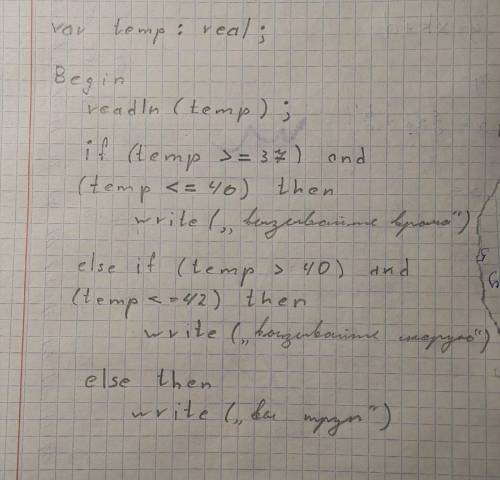 var temp : real ;
Begin
readln (temp) ;
if (temp >= 37) and
(temp <= 40) then
write („вызывайте врача“)
else if (temp > 40) and
(temp <= 42) then
write („вызывайте скорую“)
else then
write („вы труп“)